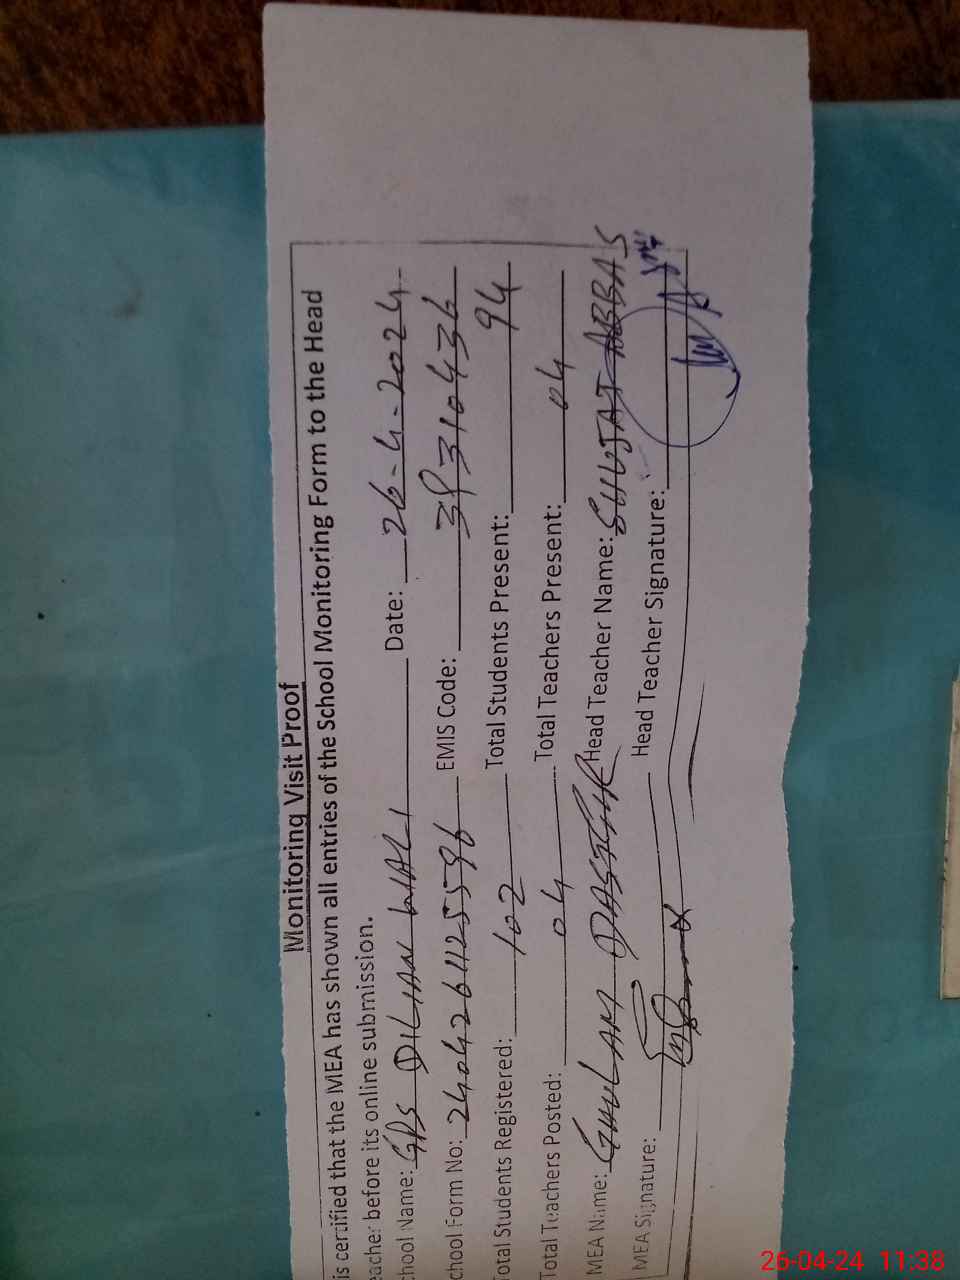 Monitoring Visit Proof
is certified that the MEA has shown all entries of the School Monitoring Form to the Head
eacher before its online submission.
chool Name: GPS DILIAN WALI Date: 26-4-2024
chool Form No: 2404261125596 EMIS Code: 38310436
Total Students Registered: 102 Total Students Present: 94
Total Teachers Posted: 04 Total Teachers Present: 04
MEA Name: GHULAM DASTGIR Head Teacher Name: SHUJAT ABBAS
MEA Signature: Head Teacher Signature:
26-04-24 11:38